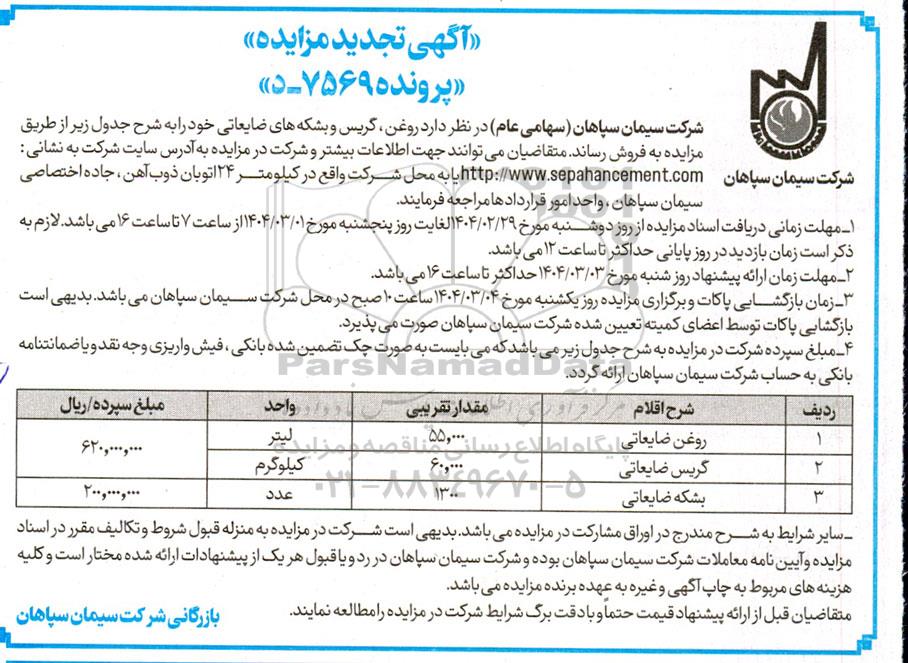 «آگهی تجدید مزایده»
«پرونده ۷۵۶۹-د»
شرکت سیمان سپاهان
شرکت سیمان سپاهان (سهامی عام) در نظر دارد روغن، گریس و بشکه های ضایعاتی خود را به شرح جدول زیر از طریق
مزایده به فروش رساند. متقاضیان می توانند جهت اطلاعات بیشتر و شرکت در مزایده به آدرس سایت شرکت به نشانی:
http://www.sepahancement.com یا به محل شرکت واقع در کیلومتر ۲۴ اتوبان ذوب آهن، جاده اختصاصی
سیمان سپاهان، واحد امور قراردادها مراجعه فرمایند.
۱ـ مهلت زمانی دریافت اسناد مزایده از روز دوشنبه مورخ ۱۴۰۴/۰۲/۲۹ لغایت روز پنجشنبه مورخ ۱۴۰۴/۰۳/۰۱ از ساعت ۷ تا ساعت ۱۶ می باشد. لازم به
ذکر است زمان بازدید در روز پایانی حداکثر تا ساعت ۱۲ می باشد.
۲ـ مهلت زمان ارائه پیشنهاد روز شنبه مورخ ۱۴۰۴/۰۳/۰۳ حداکثر تا ساعت ۱۶ می باشد.
۳ـ زمان بازگشایی پاکات و برگزاری مزایده روز یکشنبه مورخ ۱۴۰۴/۰۳/۰۴ ساعت ۱۰ صبح در محل شرکت سیمان سپاهان می باشد. بدیهی است
بازگشایی پاکات توسط اعضای کمیته تعیین شده شرکت سیمان سپاهان صورت می پذیرد.
۴ـ مبلغ سپرده شرکت در مزایده به شرح جدول زیر می باشد که می بایست به صورت چک تضمین شده بانکی، فیش واریزی وجه نقد و یا ضمانتنامه
بانکی به حساب شرکت سیمان سپاهان ارائه گردد.
ردیف شرح اقلام مقدار تقریبی واحد مبلغ سپرده/ریال
۱ روغن ضایعاتی ۵۵,۰۰۰ لیتر ۶۲۰,۰۰۰,۰۰۰
۲ گریس ضایعاتی ۶۰,۰۰۰ کیلوگرم
۳ بشکه ضایعاتی ۱۳۰۰ عدد ۲۰۰,۰۰۰,۰۰۰
ـ سایر شرایط به شرح مندرج در اوراق مشارکت در مزایده می باشد. بدیهی است شرکت در مزایده به منزله قبول شروط و تکالیف مقرر در اسناد
مزایده و آیین نامه معاملات شرکت سیمان سپاهان بوده و شرکت سیمان سپاهان در رد و یا قبول هر یک از پیشنهادات ارائه شده مختار است و کلیه
هزینه های مربوط به چاپ آگهی و غیره به عهده برنده مزایده می باشد.
متقاضیان قبل از ارائه پیشنهاد قیمت حتماً و با دقت برگ شرایط شرکت در مزایده را مطالعه نمایند.
بازرگانی شرکت سیمان سپاهان
ParsNamadData
پایگاه اطلاع رسانی مناقصه و مزایده
۰۲۱-۸۸۳۴۹۶۷۰-۵